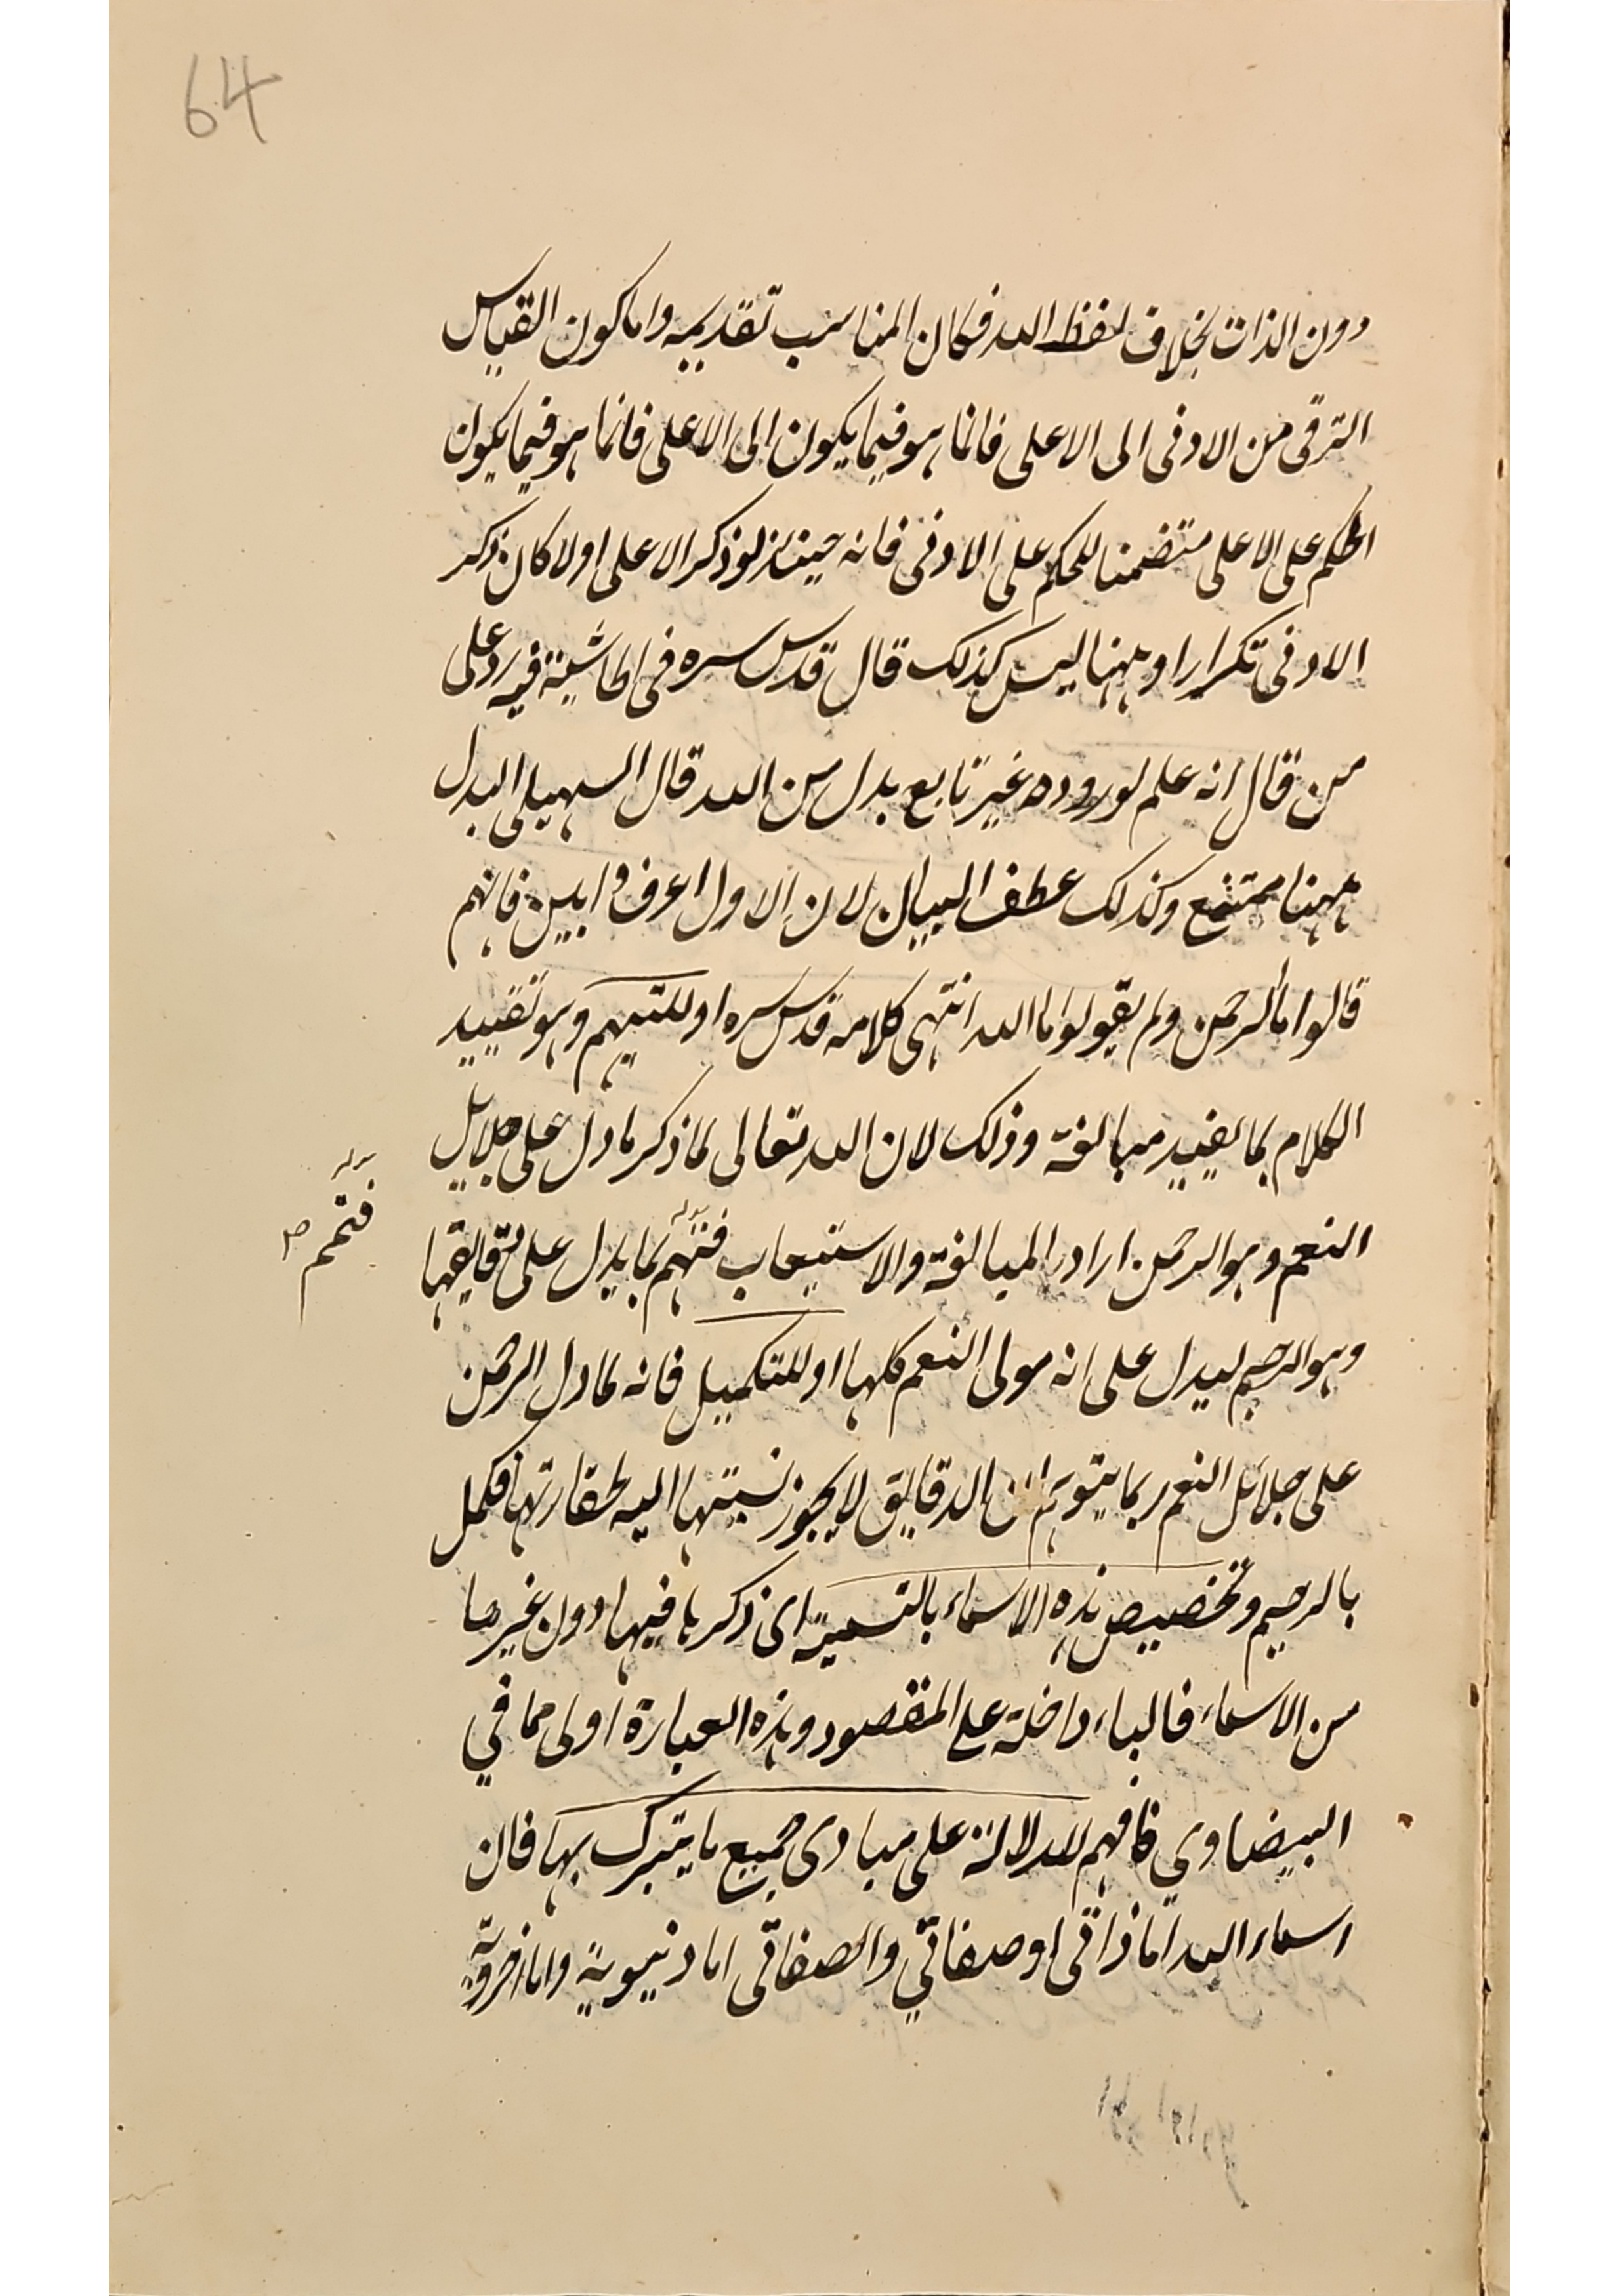 64
دون الذات بخلاف لفظ الله فكان المناسب تقديمه واما كون القياس
الترقى من الادنى الى الاعلى فانما هو فيما يكون الى الاعلى فانما هو فيما يكون
الحكم على الاعلى متضمنا للحكم على الادنى فانه حينئذ لو ذكر الاعلى اولا كان ذكر
الادنى تكرارا وههنا ليس كذلك قال قدس سره فى الحاشية فيه رد على
من قال انه علم لوروده غير تابع بدل من الله قال السهيلى البدل
ههنا ممتنع وكذلك عطف البيان لان الاول اعرف وابين فانهم
قالوا ما الرحمن ولم يقولوا ما الله انتهى كلامه قدس سره او للتتيهم وهو تقييد
الكلام بما يفيد مبالغة وذلك لان الله تعالى لما ذكر ما دل على جلايل
النعم وهو الرحمن اراد المبالغة والاستيعاب فتهم بما يدل على دقايقها
فتمم
وهو الرحيم ليدل على انه مولى النعم كلها او للتكميل فانه لما دل الرحمن
على جلائل النعم ربما يتوهم ان الدقايق لا يجوز نسبتها اليه لحقارتها فكمل
بالرحيم وتخصيص هذه الاسماء بالتسمية اى ذكرها فيها دون غيرها
من الاسماء فالباء داخلة على المقصود وهذه العبارة اولى مما في
البيضاوي فافهم للدلالة على مبادى جميع ما يتبرك بها فان
اسماء الله اما ذاتى او صفاتي والصفاتى اما دنيوية واما اخروية